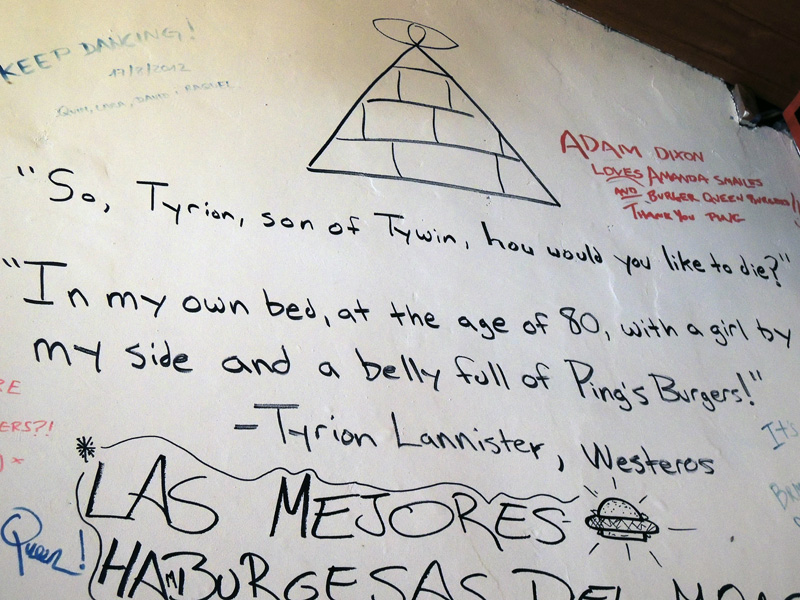 KEEP DANCING!
17/2/2012
QUIM, LARA, DAVID & RAQUEL
ADAM DIXON
LOVES AMANDA SMAILES
AND BURGER QUEEN BURGERS!!
THANK YOU PING
"So, Tyrion, son of Tywin, how would you like to die?"
"In my own bed, at the age of 80, with a girl by
my side and a belly full of Ping's Burgers!"
-Tyrion Lannister, Westeros
LAS MEJORES
HAMBURGESAS DEL
Queen!
It's